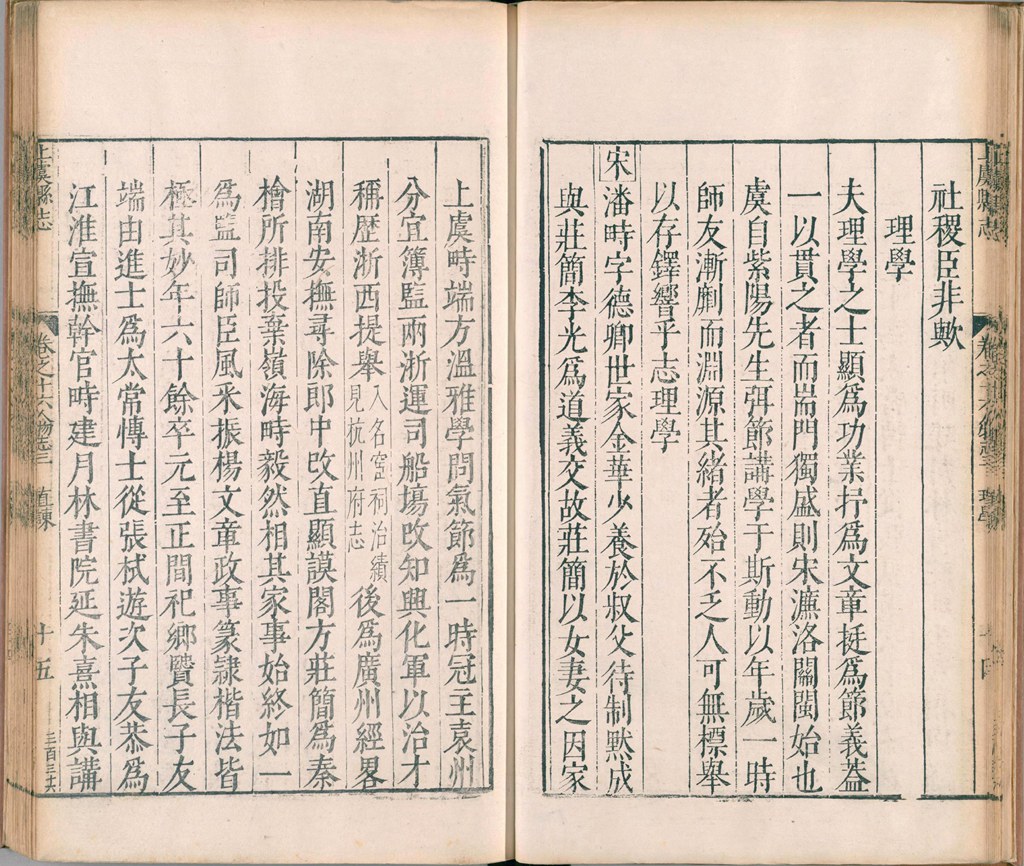 社稷臣非歟
理學
夫理學之士顯爲功業抒爲文章挺爲節義葢
一以貫之者而耑門獨盛則宋濂洛關閩始也
虞自紫陽先生弭節講學于斯動以年歲一時
師友漸劘而淵源其緒者殆不乏人可無標舉
以存鐸響乎志理學
宋潘時字德卿世家金華少養於叔父待制默成
與莊簡李光爲道義交故莊簡以女妻之因家
上虞時端方溫雅學問氣節爲一時冠主袁州
分宜簿監兩浙運司船塲攺知興化軍以治才
稱歷浙西提舉入名宦祠治績見杭州府志後爲廣州經畧
湖南安撫尋除郎中攺直顯謨閣方莊簡爲秦
檜所排投棄嶺海時毅然相其家事始終如一
爲監司師臣風采振楊文章政事篆隷楷法皆
極其妙年六十餘卒元至正間祀鄉賢長子友
端由進士爲太常愽士從張栻遊次子友恭爲
江淮宣撫幹官時建月林書院延朱熹相與講
上虞縣志
卷之十六人物志三
直諫
十五
三百三六
上虞縣志
理學